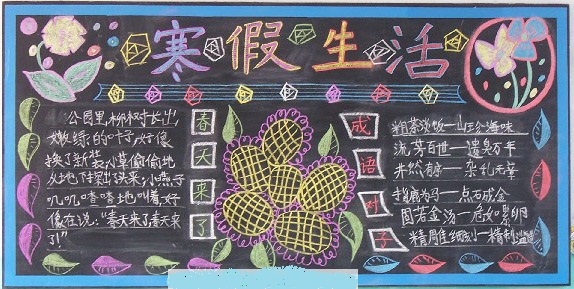 寒假生活
公园里，柳树长出
嫩绿的叶子，好像
换了新装，小草偷偷地
从土地下钻出了头来，小燕子
叽叽喳喳土地叫着，好
像在说："春天来了，春天来
了！"
春天来了
成语对子
粗茶淡饭—山珍海味
流芳百世—遗臭万年
井然有序—杂乱无章
指鹿为马—点石成金
固若金汤—危如累卵
精雕细刻—粗制滥造